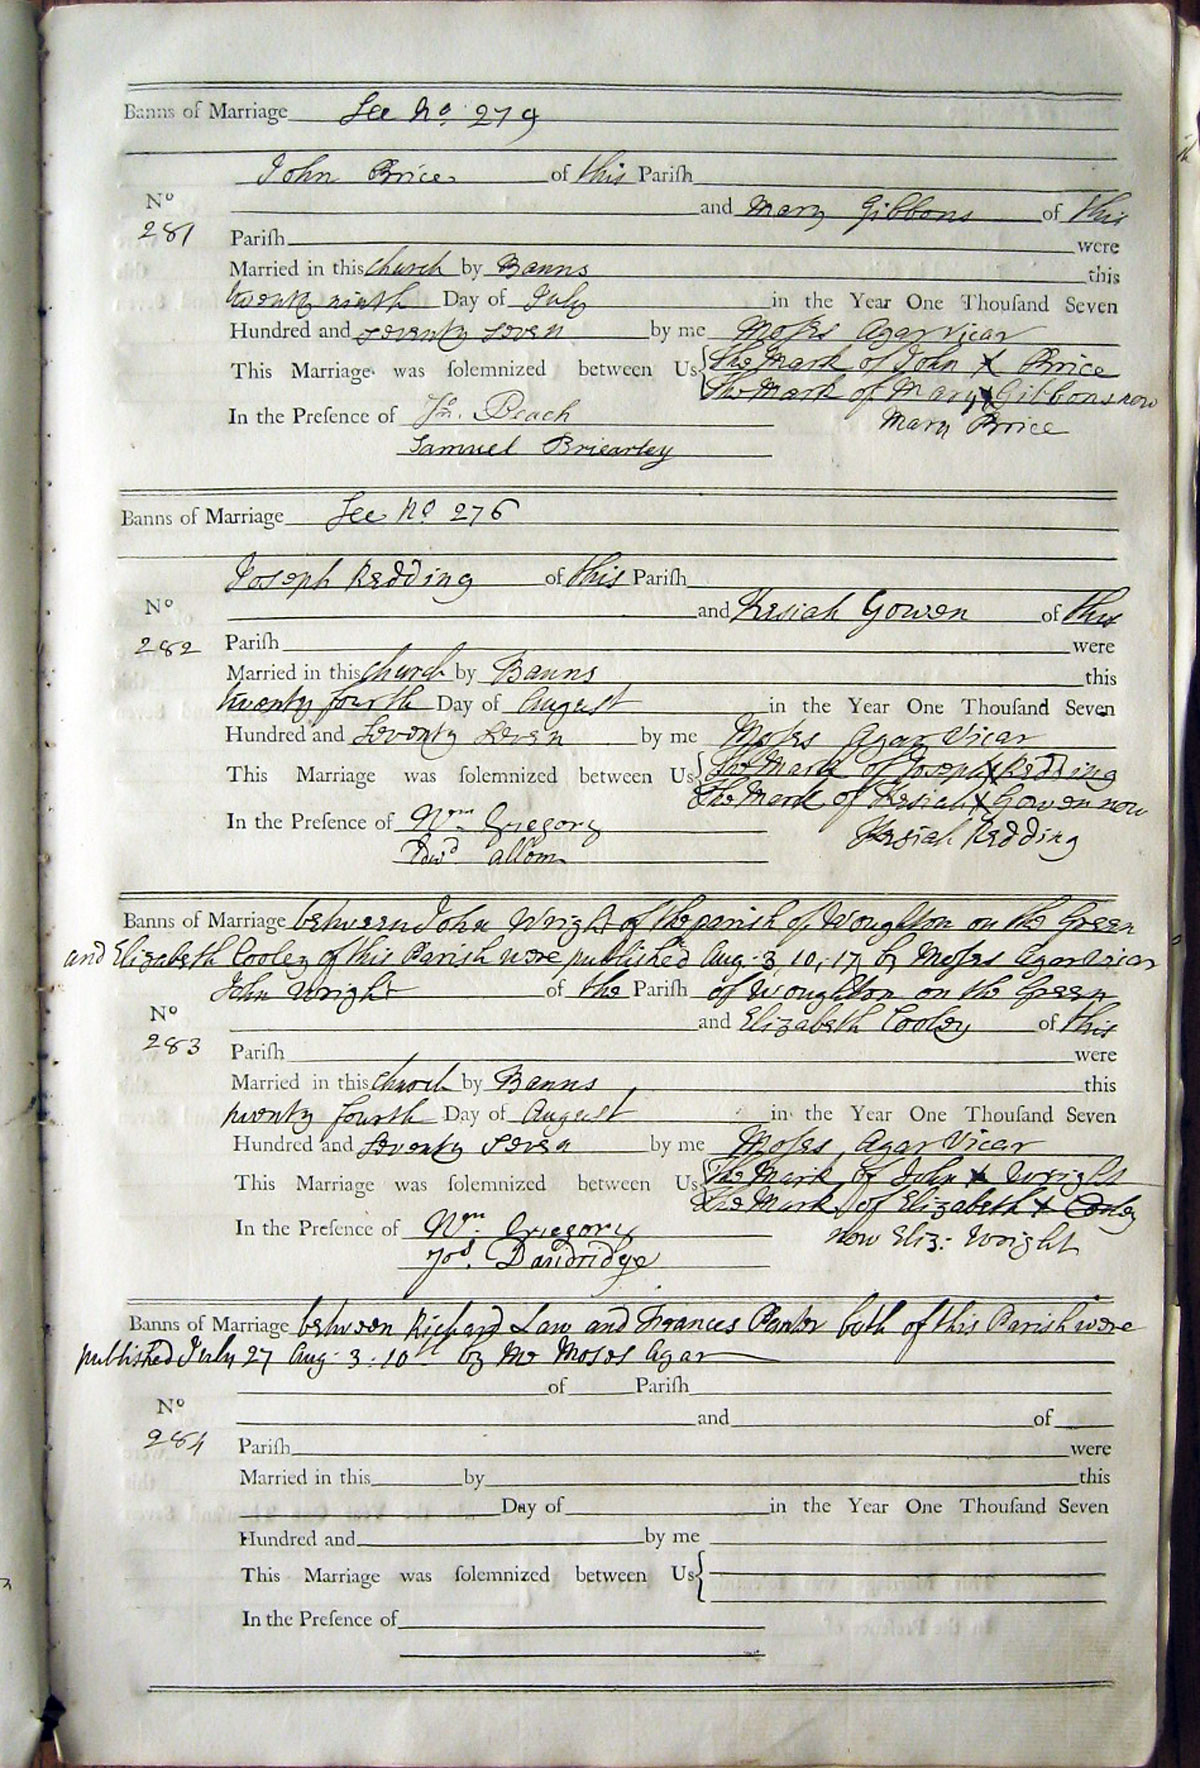 Banns of Marriage See No. 279
John Brice of this Pariſh
No
281
and Mary Gibbons of this
Pariſh were
Married in this church by Banns this
twenty ninth Day of July in the Year One Thouſand Seven
Hundred and seventy seven by me Moſes Agar Vicar
This Marriage was ſolemnized between Us { The Mark of John X Brice
The Mark of Mary X Gibbons now
Mary Brice
In the Preſence of Jn. Beach
Samuel Briearley
Banns of Marriage See No 276
Joseph Redding of this Pariſh
No
282
and Kesiah Gowen of this
Pariſh were
Married in this church by Banns this
twenty fourth Day of August in the Year One Thouſand Seven
Hundred and Seventy seven by me Moſes Agar Vicar
This Marriage was ſolemnized between Us { The Mark of Joseph X Redding
The Mark of Kesiah X Gowen now
Kesiah Redding
In the Preſence of Wm. Gregory
Edwd allom
Banns of Marriage between John Wright of the parish of Woughton on the Green
and Elizabeth Cooley of this Parish were published Aug. 3, 10, 17 by Moſes Agar Vicar
John Wright of the Pariſh of Woughton on the Green
No
283
and Elizabeth Cooley of this
Pariſh were
Married in this church by Banns this
twenty fourth Day of August in the Year One Thouſand Seven
Hundred and Seventy Seven by me Moſes Agar Vicar
This Marriage was ſolemnized between Us { The Mark of John X Wright
The Mark of Elizabeth X Cooley
now Eliz: Wright
In the Preſence of Wm. Gregory
Jos. Dandridge
Banns of Marriage between Richard Law and Frances Panter both of this Parish were
published July 27 Aug. 3. 10 by Mr Moses Agar
of Pariſh
No
284
and of
Pariſh were
Married in this by this
Day of in the Year One Thouſand Seven
Hundred and by me
This Marriage was ſolemnized between Us {
In the Preſence of